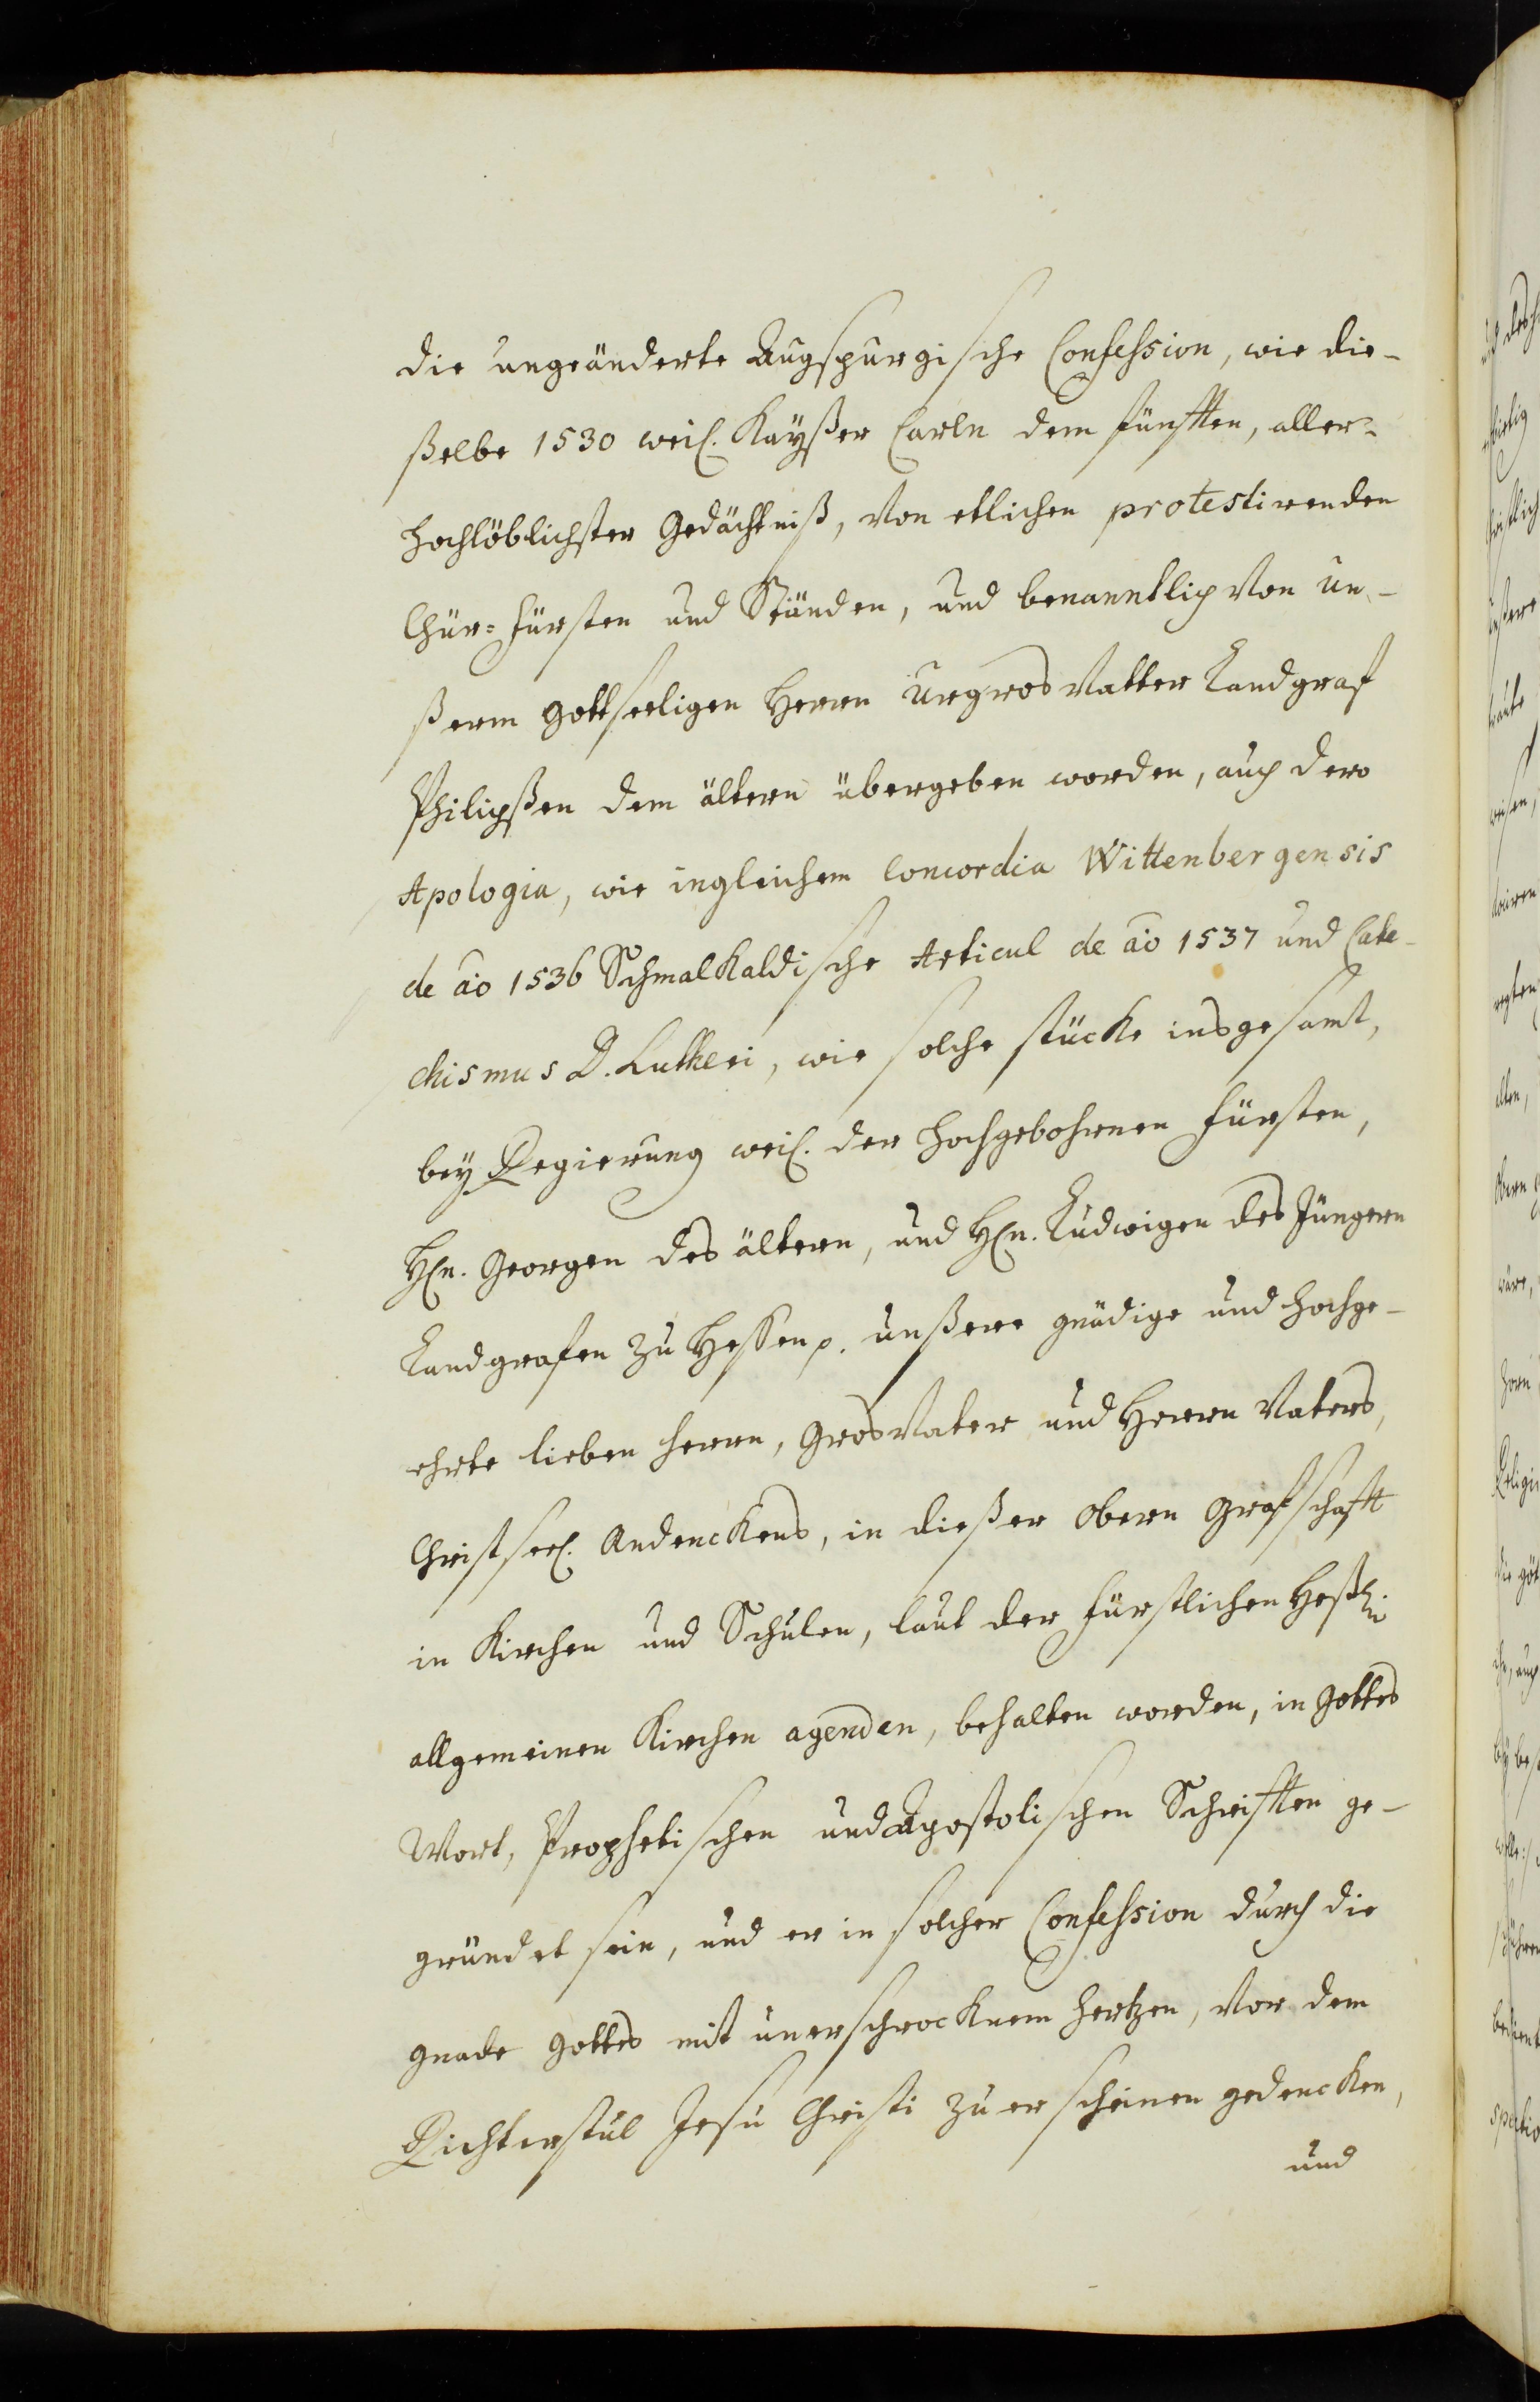 die ungeänderte Augspurgische Confession, wie die-
ßelbe 1530 weil. Kayßer Carln dem fünfften, aller-
hochlöblichster Gedächtniß, von etlichen protestirenden
Chür=fürsten und Ständen, und benanntlich von un-
ßerm gottseeligen Herrn Urgros Vatter Landgraf
Philipßen dem ältern übergeben worden, auch dero
Apologia, wie ingleichem Concordia Wittenbergensis
de ao 1536 Schmalkaldische Articul de ao 1537 und Cate-
chismus D. Lutheri, wie solche stücke insgesamt,
bey Regierung weil. der hochgebohrnen fürsten,
Hn. Georgen des ältern, und Hn. Ludwigen des Jüngern
Landgrafen zu Hessen p. unßere gnädige und hochge-
ehrte lieben herrn, GrosVater und Herrn Vaters,
Christseel. Andenckens, in dießer Obern Grafschafft
in Kirchen und Schulen, laut der fürstlichen Heßl.
allgemeinen Kirchen agenden, behalten worden, in Gottes
Wort, Prophetischen und Apostolischen Schrifften ge-
gründet sein, und er in solcher Confession durch die
gnade Gottes mit unerschrocknem hertzen, vor dem
Richterstul Jesu Christi zu erscheinen gedencken,
und